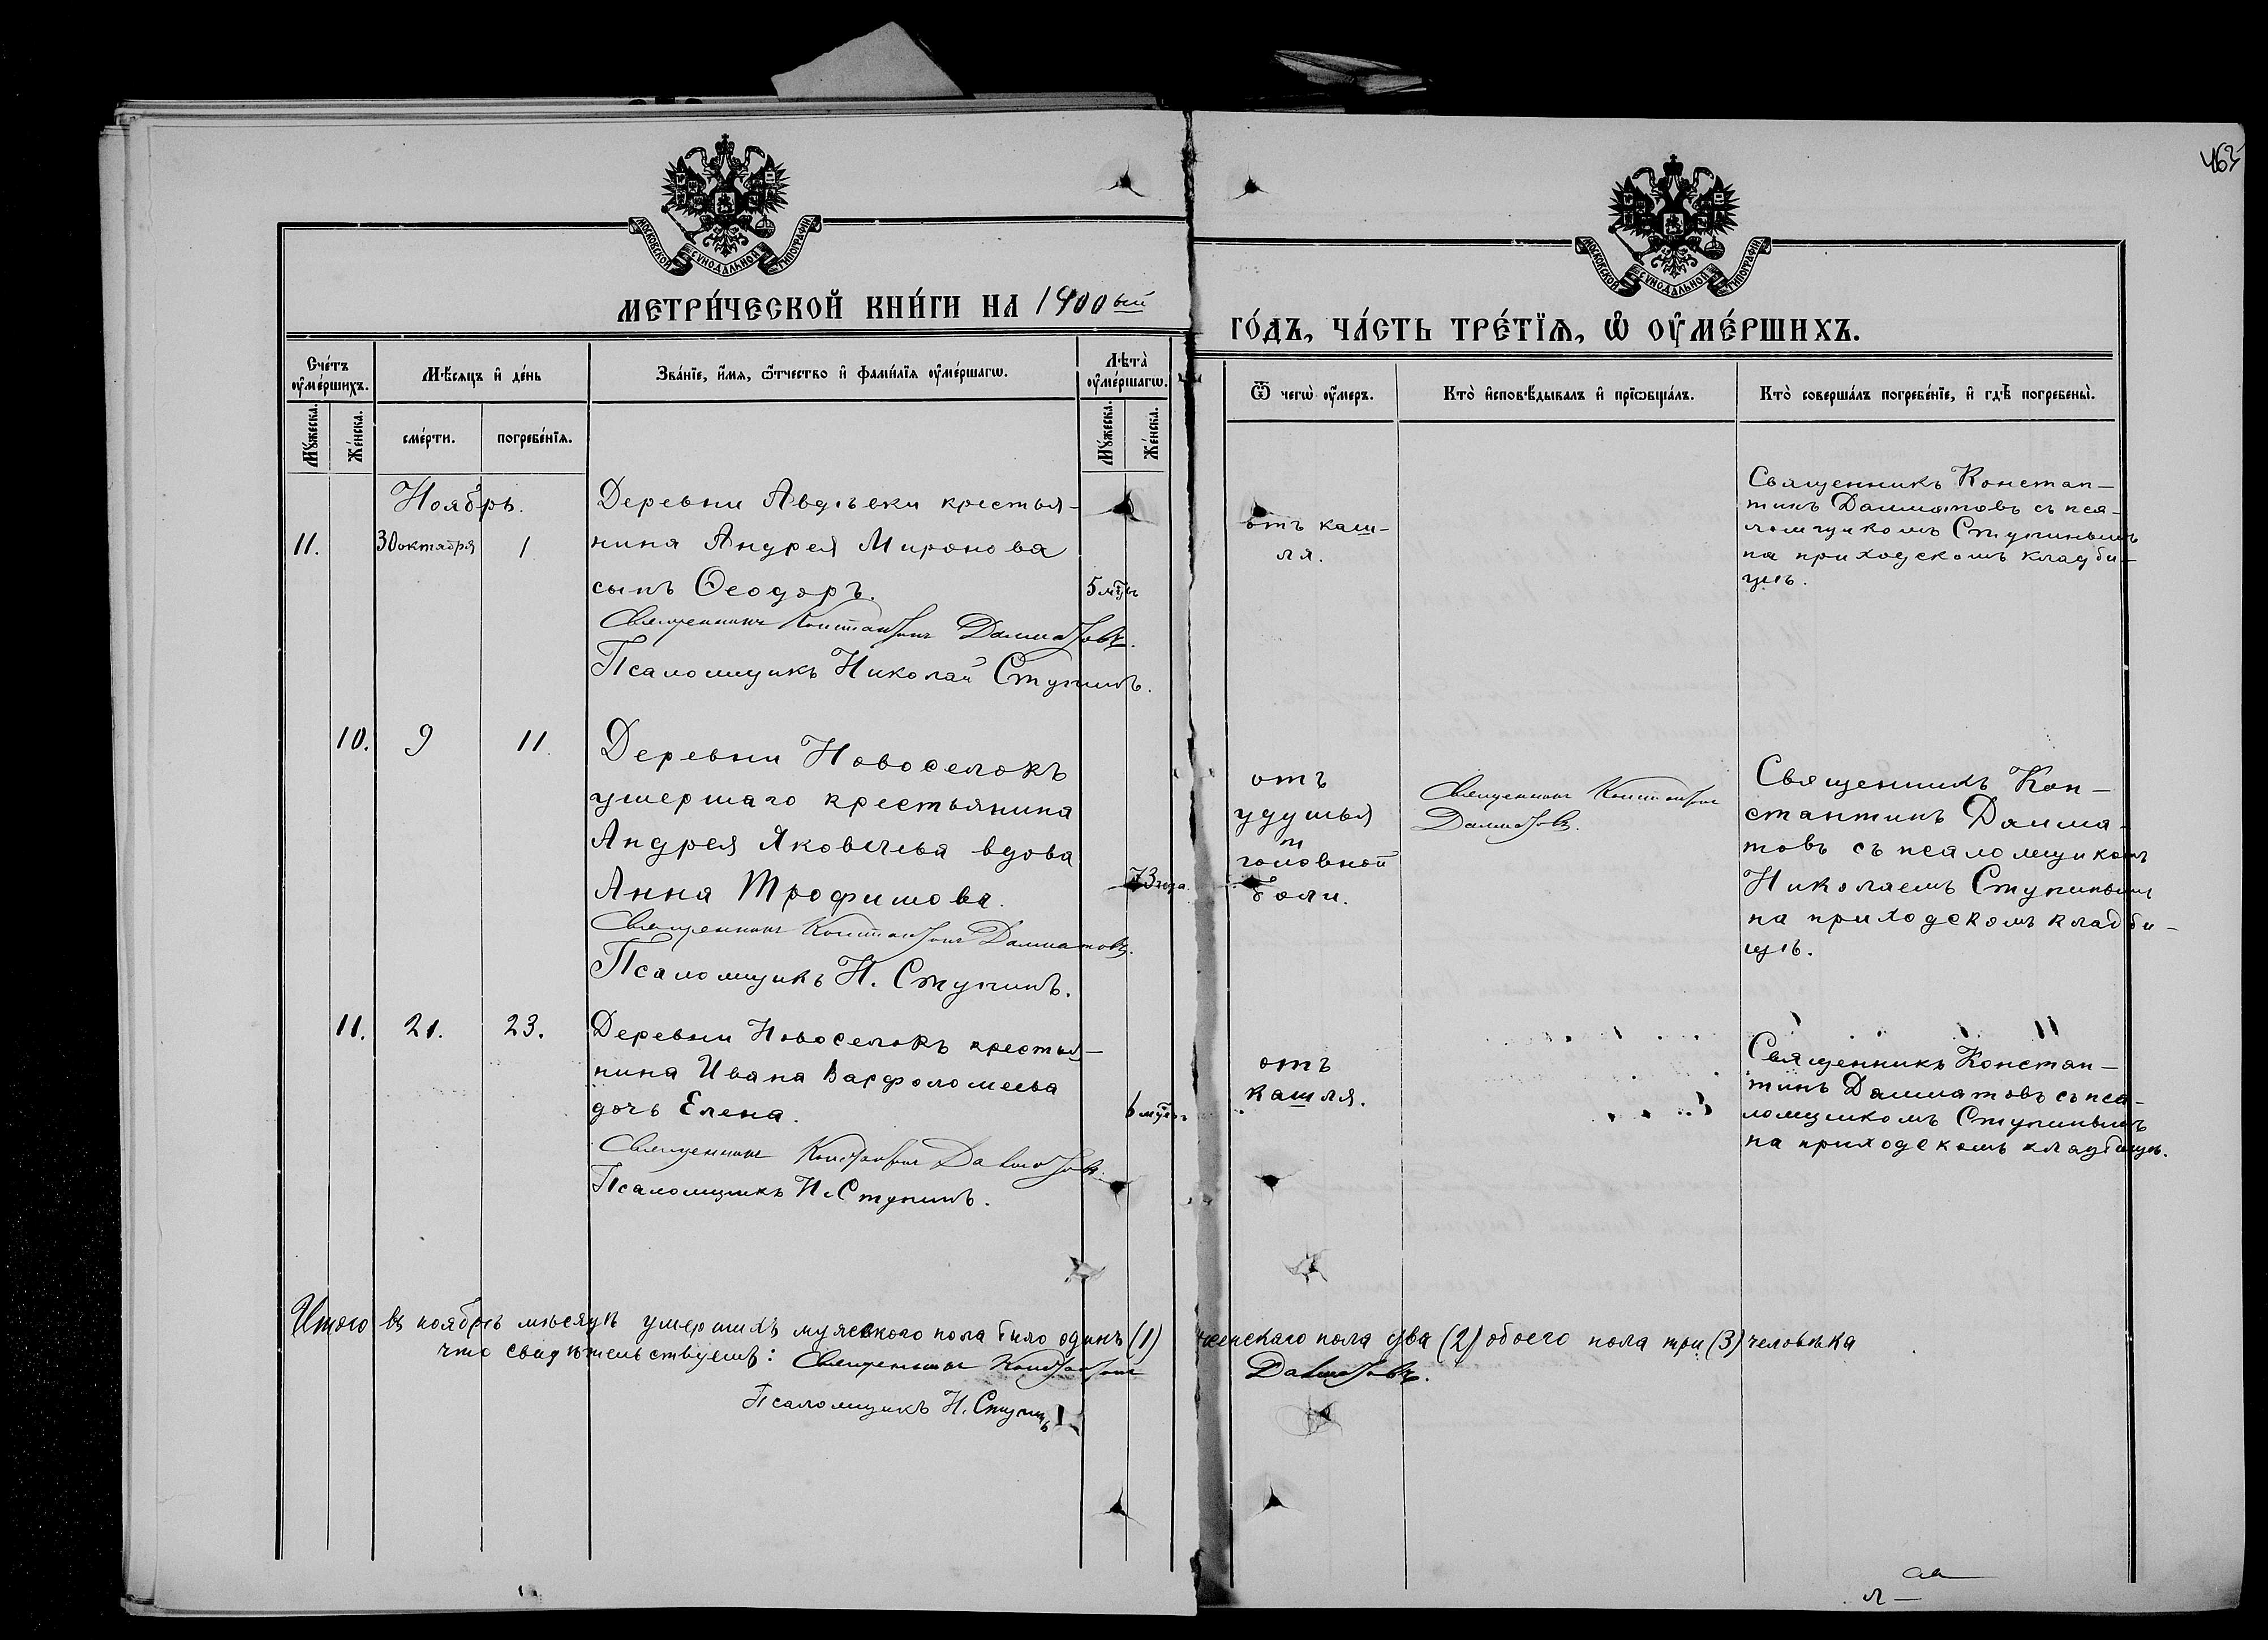 463
МОСКОВСКОЙ СУНОДАЛЬНОЙ ТИПОГРАФІИ
МОСКОВСКОЙ СУНОДАЛЬНОЙ ТИПОГРАФІИ
МЕТРИ́ЧЕСКОЙ КНИ́ГИ НА 1900ый
ГО́ДЪ, ЧА́СТЬ ТРЕ́ТІѦ, Ѡ҆ ОУ҆МЕ́РШИХЪ.
Сче́тъ оу҆ме́ршихъ.
Мꙋ́жеска.
Же́нска.
Мѣ́сяцъ и҆ де́нь
сме́рти.
погребе́нїѧ.
Зва́нїе, и҆́мѧ, ѻ҆́тчество и҆ фами́лїѧ оу҆ме́ршагѡ.
Лѣ́та оу҆ме́ршагѡ.
Мꙋ́жеска.
Же́нска.
Ѿ чегѡ̀ оу҆́меръ.
Кто̀ и҆сповѣ́дывалъ и҆ прїѡбща́лъ.
Кто̀ соверша́лъ погребе́нїе, и҆ гдѣ̀ погребены̀.
Ноябрь.
11.
30 октября
1
Деревни Авдѣевки крестья-
нина Андрея Миронова
сынъ Ѳеодоръ.
5 мцъ
Священникъ Константинъ Далматовъ.
Псаломщикъ Николай Ступинъ.
отъ каш-
ля.
Священникъ Констан-
тинъ Далматовъ съ пса-
ломщикомъ Ступинымъ
на приходскомъ кладби-
щѣ.
10.
9
11
Деревни Новоселокъ
умершаго крестьянина
Андрея Яковлева вдова
Анна Трофимова.
73 года.
Священникъ Константинъ Далматовъ.
Псаломщикъ Н. Ступинъ.
отъ
удушья
и
головной
боли.
Священникъ Константинъ
Далматовъ.
Священникъ Кон-
стантинъ Далма-
товъ съ псаломщикомъ
Николаемъ Ступинымъ
на приходскомъ кладби-
щѣ.
11.
21.
23.
Деревни Новоселокъ крестья-
нина Ивана Варфоломеева
дочь Елена.
6 мцъ
Священникъ Константинъ Далматовъ.
Псаломщикъ Н. Ступинъ.
отъ
кашля.
Священникъ Констан-
тинъ Далматовъ съ пса-
ломщикомъ Ступинымъ
на приходскомъ кладбищѣ.
Итого въ ноябрѣ мѣсяцѣ умершихъ мужскаго пола было одинъ (1) женскаго пола два (2) обоего пола три (3) человѣка
что свидѣтельствуемъ: Священникъ Константинъ Далматовъ.
Псаломщикъ Н. Ступинъ